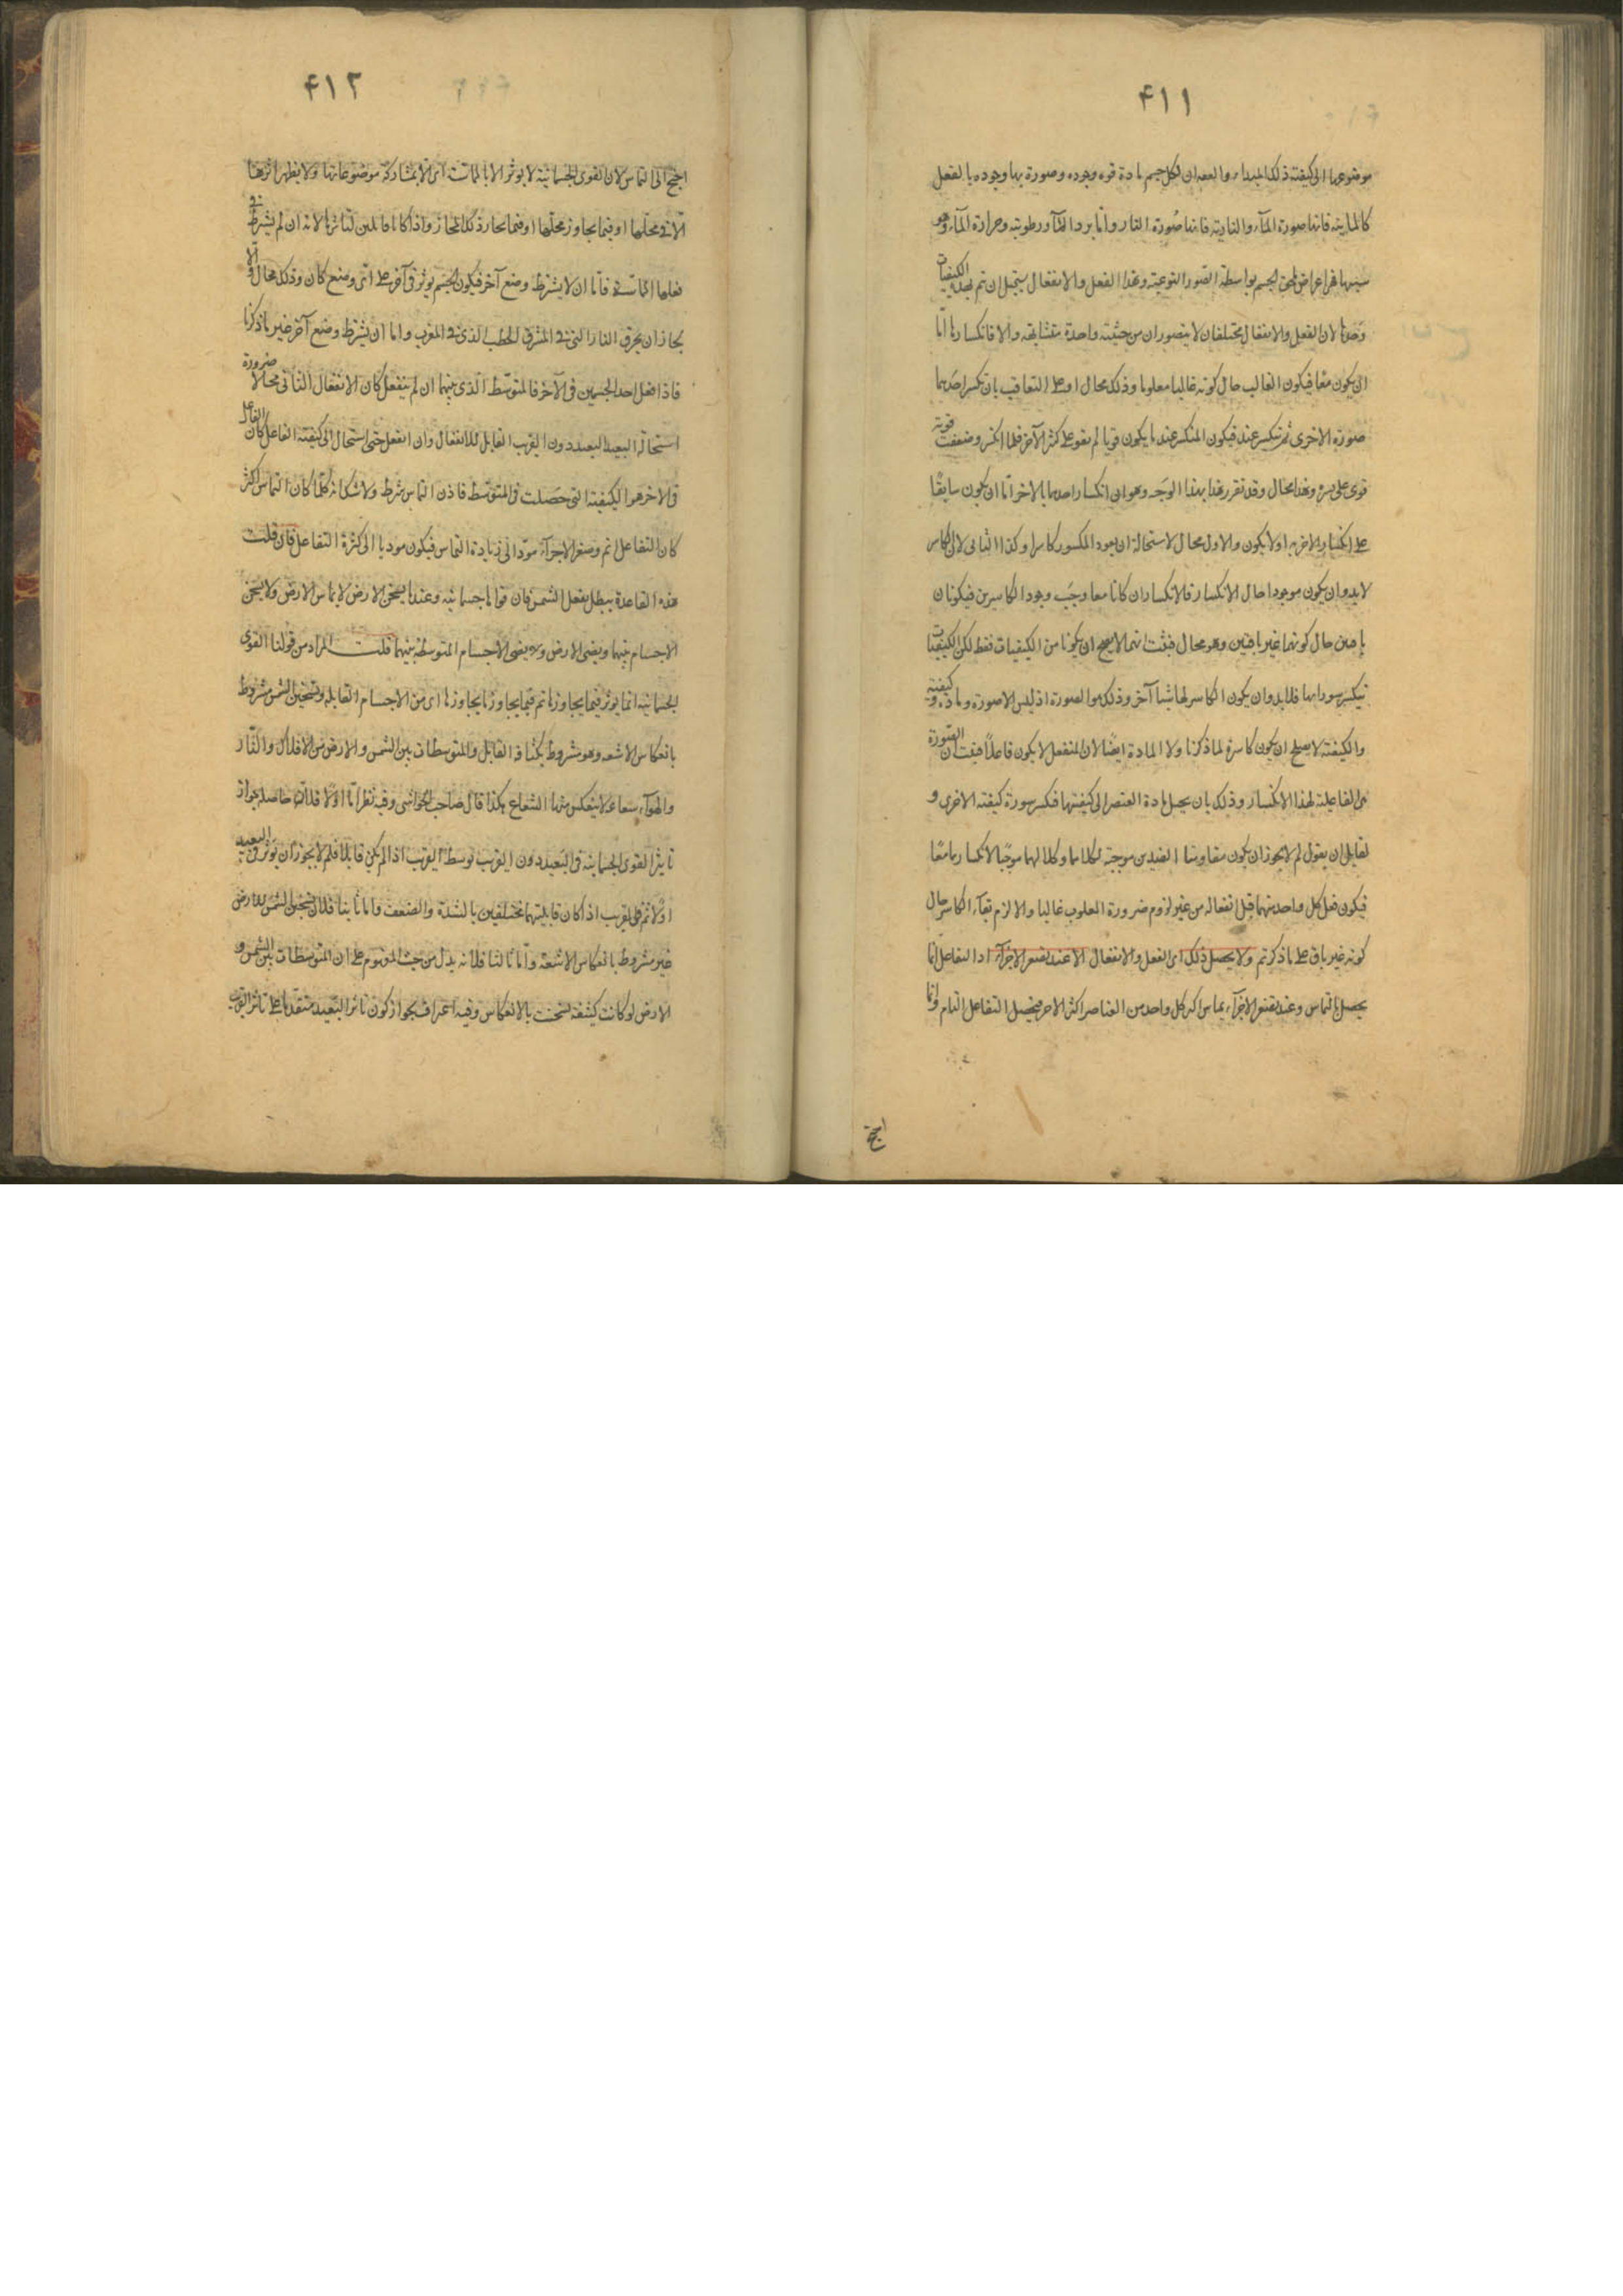 ۴۱۱
موضوعها الى كيفية ذلك المبدء والعصر ان لكل جسم مادة قوه وجوده وصورة بها وجوده بالفعل
كالمائية فانها صورة الماء والنارية فانها صورة النار واما برد الماء ورطوبته وحرارة الماء وهو
سببها فهى اعراض للجسم بواسطة الصور النوعية وهذا الفعل والانفعال يستحيل ان يتم الكيفيات
وحدها لان الفعل والانفعال مختلفان لا يتصوران من حيثية واحدة متشابهة والا فانكسارها اما
ان يكون معا فيكون الغالب حال كونه غالبا مغلوبا وذلك محال او على التعاقب بان تكسر احديهما
صورة الاخرى ثم تنكسر عنه فيكون المنكسر عندما يكون قويا لم يقو على كسر الآخر فلما انكسر وضعفت قوته
قوى على كسره وهذا محال وقد تقرر هذا بهذا الوجه وهو ان انكسار احدهما بالاخر اما ان يكون سابقا
على انكسار الاخر به اولا يكون والاول محال لاستحالة ان يعود المكسور كاسرا وكذا الثانى لان الكاسر
لابد وان يكون موجودا حال الانكسار فالانكساران كانا معا وجب وجود الكاسرين فيكونان
باقيين حال كونهما غير باقيين وهو محال فثبت انهما لا يصح ان يكونا من الكيفيات فقط لكن الكيفيات
تنكسر سوراتها فلا بد وان يكون الكاسر لها شيئا آخر وذلك هو الصورة اذ ليس الا صورة ومادة وكيفية
والكيفية لا يصلح ان يكون كاسرة لما ذكرنا ولا المادة ايضا لان المنفعل لا يكون فاعلا فثبت ان الصورة
هى الفاعلة لهذا الانكسار وذلك بان يحيل مادة العنصر الى كيفيتها فتكسر سورة كيفيته الاخرى و
لقائل ان يقول لم لا يجوز ان يكون مقاومتنا الضدين موجبة لكلاهما وكلالهما موجبا لانكسارهما معا
فيكون فعل كل واحد منهما قبل انفعاله من غير لزوم ضرورة المغلوب غالبا والا لزم بقاء الكاسر حال
كونه غير باق على ما ذكرتم ولا يحصل ذلك اى الفعل والانفعال الا عند تصغر الاجزاء اذ التفاعل انما
يحصل بالتماس وعند تصغر الاجزاء يماس اكثر كل واحد من العناصر اكثر الاخر فيحصل التفاعل التام وانما
احتج
۴۱۲
احتج الى التماس لان القوى الجسمانية لا يوثر الا بالمماسة اى الا بمشاركة موضوعاتها ولا يظهر اثرها
الا فى محلها او فيما يجاوز محلها او فيما يجاوز ذلك المجاز واذا كانا قابلين لتاثرها لانه ان لم يشترط فى
فعلها المماسة فاما ان لا يشترط وضع آخر فيكون الجسم يوثر فى آخر على اى وضع كان وذلك محال والا
لجاز ان يحرق النار التى فى المشرق الحطب الذى فى المغرب واما ان يشترط وضع آخر غير ما ذكرنا
فاذا فعل احد الجسمين فى الآخر فالمتوسط الذى بينهما ان لم ينفعل كان الانفعال الثانى محالا ضرورة
استحالة البعيد دون القريب القابل للانفعال وان انفعل حتى استحال الى كيفية الفاعل كان الفاعل
فى الاخر هو الكيفية التى حصلت فى المتوسط فاذن التماس شرط ولا شك انه كلما كان التماس اكثر
كان التفاعل اتم وصغر الاجزاء مود الى زيادة التماس فيكون موديا الى كثرة التفاعل فان قلت
هذه القاعدة يبطل بفعل الشمس فان قواها جسمانية وعندها يسخن الارض لا بماس الارض ولا يسخن
الاجسام بينهما ويضى الارض ولا يضى الاجسام المتوسطة بينهما قلت المراد من قولنا القوى
الجسمانية انما يوثر فيما يجاوزها ثم فيما يجاوز ما يجاوزها اى من الاجسام القابلة وتسخين الشمس مشروط
بانعكاس الاشعة وهو مشروط بكثافة القابل والمتوسطات بين الشمس والارض من الافلاك والنار
والهواء سعاعه لا ينعكس منها الشعاع هكذا قال صاحب الحواشى وفيه نظر اما اولا فلان حاصله جواز
تاثير القوى الجسمانية فى البعيد دون القريب توسط القريب اذا لم يكن قابلا فلم لا يجوز ان يوثر فى البعيد
اولا ثم فى القريب اذا كان قابليتهما مختلفين بالشدة والضعف واما ثانيا فلان تسخين الشمس للارض
غير مشروط بانعكاس الاشعة واما ثالثا فلانه يدل من حيث المفهوم على ان المتوسطات بين الشمس و
الارض لو كانت كثيفة تسخنت بالانعكاس وفيه اعتراف بجواز كون تاثر البعيد متقدما على تاثر القريب